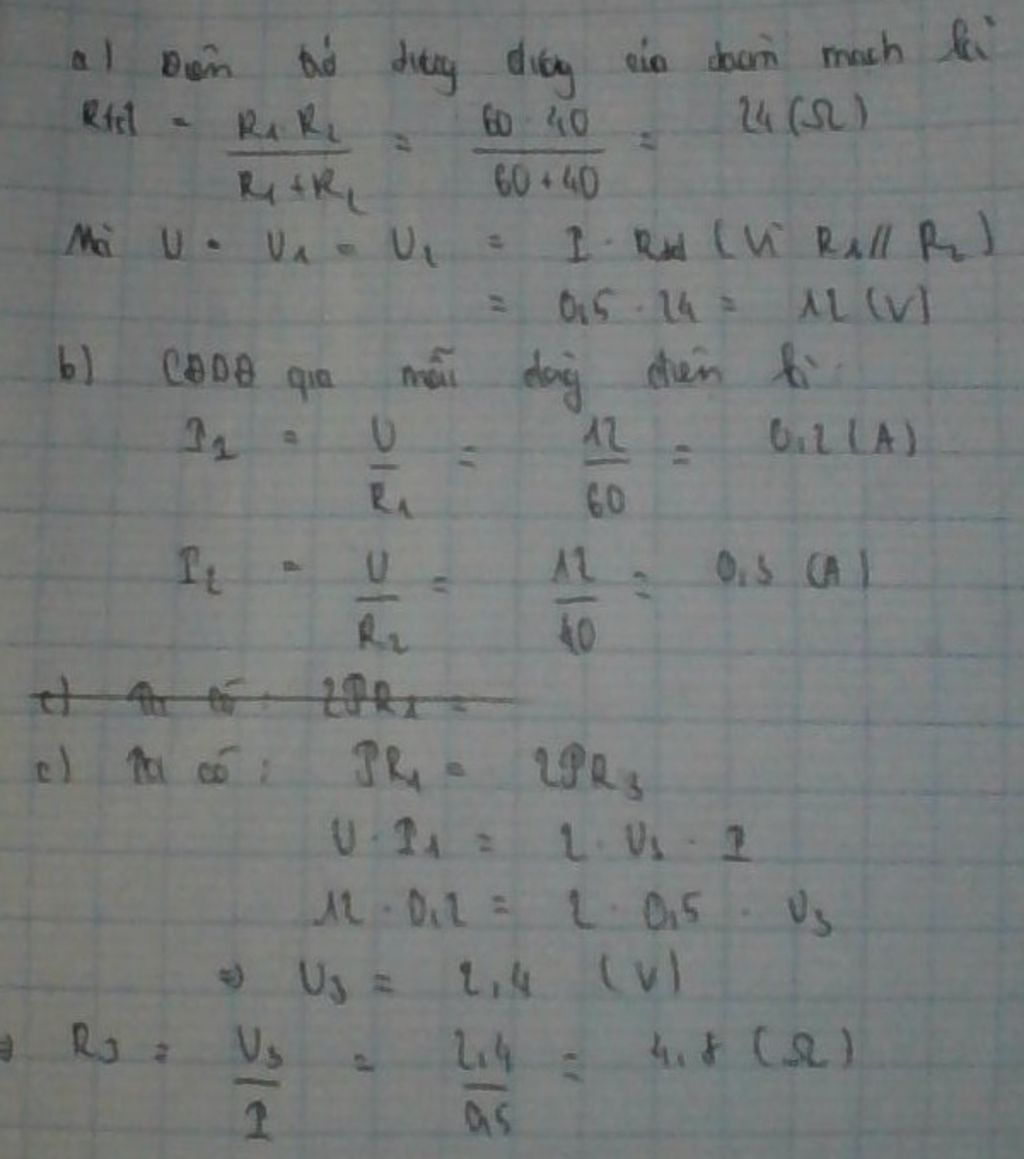 a) Điện trở tương đương của đoạn mạch là
Rtđ = R1.R2 / R1+R2 = 60.40 / 60+40 = 24 (Ω)
Mà U = U1 = U2 = I . Rtđ (Vì R1 // R2)
= 0,5 . 24 = 12 (V)
b) CĐDĐ qua mỗi dòng điện là
I1 = U / R1 = 12 / 60 = 0,2 (A)
I2 = U / R2 = 12 / 40 = 0,3 (A)
c) Ta có: 2PR1 =
c) Ta có: PR1 = 2PR3
U . I1 = 2 . U3 . I
12 . 0,2 = 2 . 0,5 . U3
⇒ U3 = 2,4 (V)
⇒ R3 = U3 / I = 2,4 / 0,5 = 4,8 (Ω)